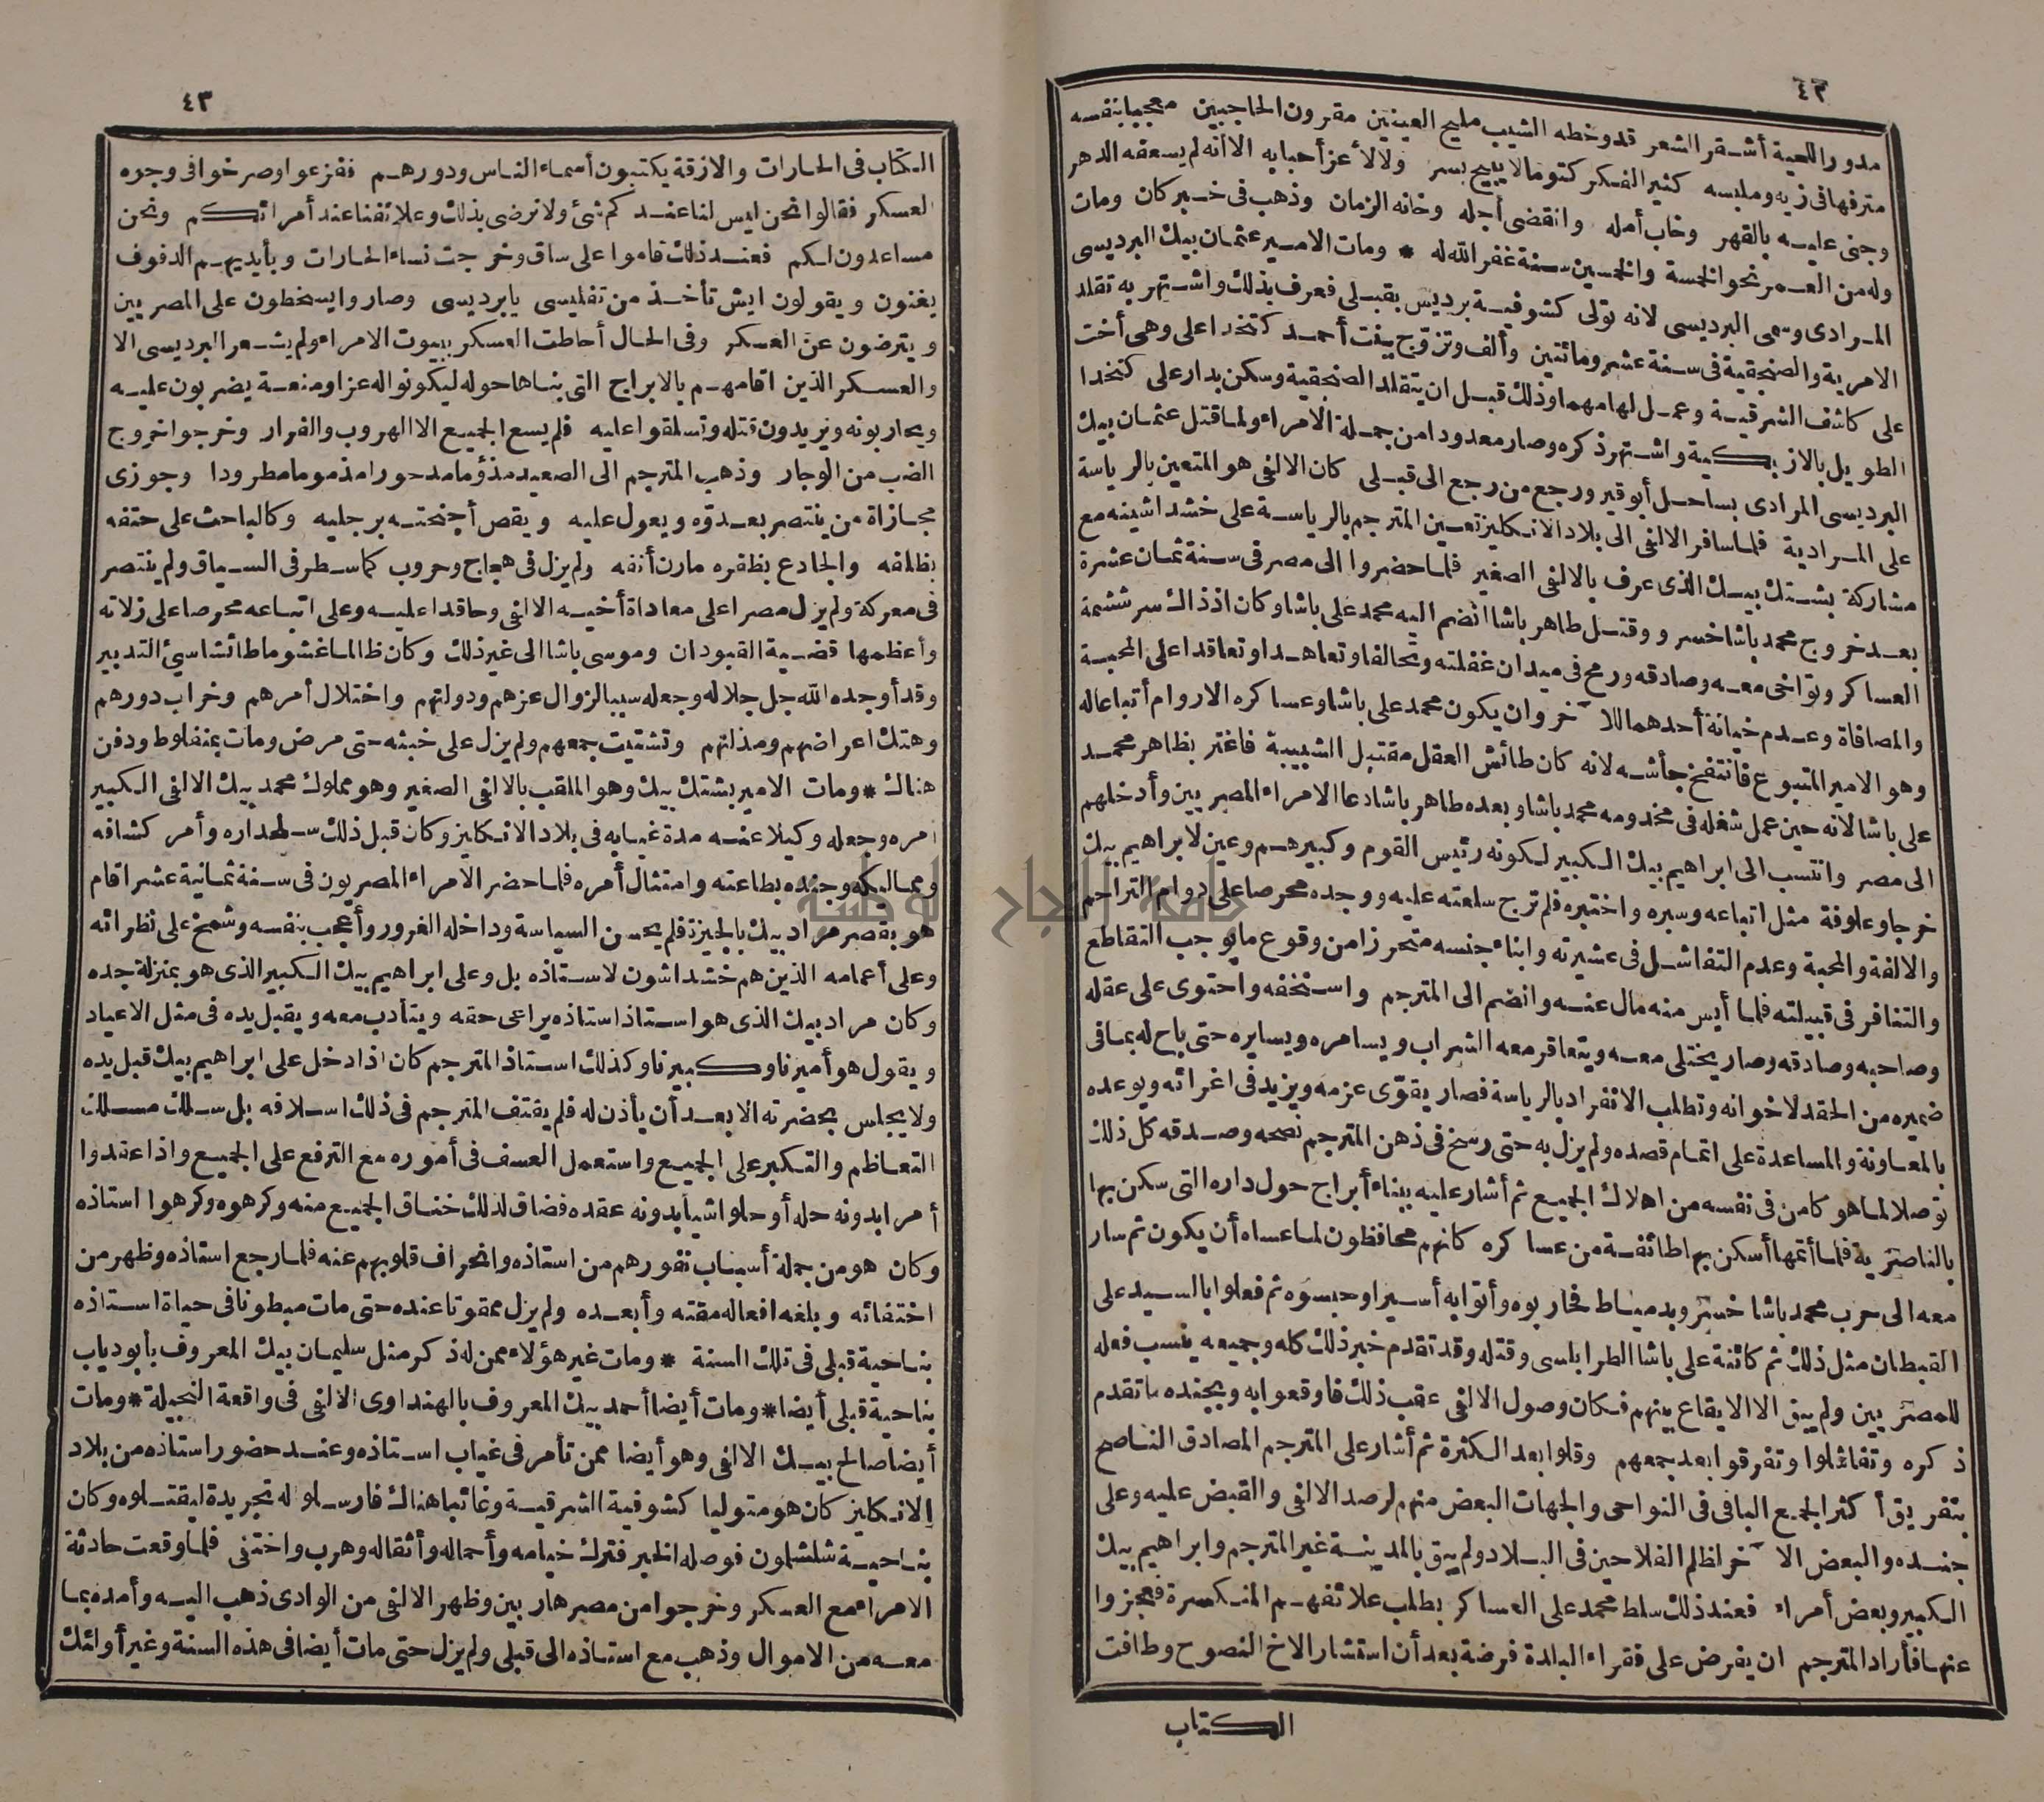 ٤٢
مدور اللحية أشقر الشعر قد وخطه الشيب مليح العينين مقرون الحاجبين معجبا بنفسه
مترفها فى زيه وملبسه كثير الفكر كتوما لا يبيح بسر ولا لأعز أحبابه الا انه لم يسعفه الدهر
وجنى عليه بالقهر وخاب أمله وانقضى أجله وخانه الزمان وذهب فى خبر كان ومات
وله من العمر نحو الخمسة والخمسين سنة غفر الله له * ومات الامير عثمان بيك البرديسى
المرادى وسمى البرديسى لانه تولى كشوفية برديس بقبلى فعرف بذلك واشتهر به تقلد
الامرية والصنجقية فى سنة عشر ومائتين وألف وتزوج ببنت أحمد كتخدا على وهى أخت
على كاشف الشرقية وعمل لها مهما وذلك قبل ان يتقلد الصنجقية وسكن بدار على كتخدا
الطويل بالازبكية واشتهر ذكره وصار معدودا من جملة الامراء ولما قتل عثمان بيك
البرديسى المرادى بساحل أبو قير ورجع من رجع الى قبلى كان الالفى هو المتعين بالرياسة
على المرادية فلما سافر الالفى الى بلاد الانكليز تعين المترجم بالرياسة على خشداشينه مع
مشاركة بشتك بيك الذى عرف بالالفى الصغير فلما حضروا الى مصر فى سنة ثمان عشرة
بعد خروج محمد باشا خسرو وقتل طاهر باشا انضم اليه محمد على باشا وكان اذ ذاك سرششمة
العساكر وتواخى معه وصادقه ورمح فى ميدان غفلته وتحالفا وتعاهدا وتعاقدا على المحبة
والمصافاة وعدم خيانة أحدهما للآخر وان يكون محمد على باشا وعساكره الاروام أتباعا له
وهو الامير المتبوع فانتفخ جأشه لانه كان طائش العقل مقتبل الشبيبة فاغتر بظاهر محمد
على باشا لانه حين عمل شغله فى مخدومه محمد باشا وبعده طاهر باشا دعا الامراء المصريين وأدخلهم
الى مصر وانتسب الى ابراهيم بيك الكبير لكونه رئيس القوم وكبيرهم وعين لابراهيم بيك
خرجا وعلوفة مثل اتباعه وسبره واختبره فلم ترج سلعته عليه ووجده محرصا على دوام التراحم
والالفة والمحبة وعدم التفاشل فى عشيرته وابناء جنسه متحرزا من وقوع ما يوجب التقاطع
والتنافر فى قبيلته فلما أيس منه مال عنه وانضم الى المترجم واستخفه واحتوى على عقله
وصاحبه وصادقه وصار يختلى معه ويتعاقر معه الشراب ويسامره ويسايره حتى باح له بما فى
ضميره من الحقد لاخوانه وتطلب الانفراد بالرياسة فصار يقوّى عزمه ويزيد فى اغرائه ويوعده
بالمعاونة والمساعدة على اتمام قصده ولم يزل به حتى رسخ فى ذهن المترجم نصحه وصدقه كل ذلك
توصلا لما هو كامن فى نفسه من اهلاك الجميع ثم أشار عليه ببناء أبراج حول داره التى سكن بها
بالناصرية فلما أتمها أسكن بها طائفة من عساكره كانهم محافظون لما عساه أن يكون ثم سار
معه الى حرب محمد باشا خسرو بدمياط فحاربوه وأتوا به أسيرا وحبسوه ثم فعلوا بالسيد على
القبطان مثل ذلك ثم كائنة على باشا الطرابلسى وقتله وقد تقدم خبر ذلك كله وجميعه ينسب فعله
للمصريين ولم يبق الا الايقاع بينهم فكان وصول الالفى عقب ذلك فاوقعوا به وبجنده ما تقدم
ذكره وتفاشلوا وتفرقوا بعد جمعهم وقلوا بعد الكثرة ثم أشار على المترجم المصادق الناصح
بتفريق أكثر الجمع الباقى فى النواحى والجهات البعض منهم لرصد الالفى والقبض عليه وعلى
جنده والبعض الآخر لظلم الفلاحين فى البلاد ولم يبق بالمدينة غير المترجم وابراهيم بيك
الكبير وبعض أمراء فعند ذلك سلط محمد على العساكر بطلب علائفهم المنكسرة فعجزوا
عنها فأراد المترجم ان يفرض على فقراء البلدة فرضة بعد أن استشار الاخ النصوح وطافت
الكتاب
٤٣
الكتاب فى الحارات والازقة يكتبون أسماء الناس ودورهم ففزعوا وصرخوا فى وجوه
العسكر فقالوا نحن ليس لنا عندكم شئ ولا نرضى بذلك وعلائفنا عند أمرائكم ونحن
مساعدون لكم فعند ذلك قاموا على ساق وخرجت نساء الحارات وبأيديهم الدفوف
يغنون ويقولون ايش تأخذ من تفليسى يا برديسى وصاروا يسخطون على المصريين
ويترضون عن العسكر وفى الحال أحاطت العسكر ببيوت الامراء ولم يشعر البرديسى الا
والعسكر الذين اقامهم بالابراج التى بناها حوله ليكونوا له عزا ومنعة يضربون عليه
ويحاربونه ويريدون قتله وتسلقوا عليه فلم يسع الجميع الا الهروب والفرار وخرجوا خروج
الضب من الوجار وذهب المترجم الى الصعيد مذؤما مدحورا مذموما مطرودا وجوزى
مجازاة من ينتصر بعدوّه ويعول عليه ويقص أجنحته برجليه وكالباحث على حتفه
بظلفه والجادع بظفره مارن أنفه ولم يزل فى هجاج وحروب كما سطر فى السياق ولم ينتصر
فى معركة ولم يزل مصرا على معاداة أخيه الالفى وحاقدا عليه وعلى اتباعه محرصا على زلاته
وأعظمها قضية القبودان وموسى باشا الى غير ذلك وكان ظالما غشوما طائشا سيئ التدبير
وقد أوجده الله جل جلاله وجعله سببا لزوال عزهم ودولتهم واختلال أمرهم وخراب دورهم
وهتك اعراضهم ومذلتهم وتشتيت جمعهم ولم يزل على خبثه حتى مرض ومات بمنفلوط ودفن
هناك * ومات الامير بشتك بيك وهو الملقب بالالفى الصغير وهو مملوك محمد بيك الالفى الكبير
امره وجعله وكيلا عنه مدة غيابه فى بلاد الانكليز وكان قبل ذلك سلحداره وأمر كشافه
ومماليكه وجنده بطاعته وامتثال أمره فلما حضر الامراء المصريون فى سنة ثمانية عشر اقام
هو بقصر مراد بيك بالجيزة فلم يحسن السياسة وداخله الغرور وأعجب بنفسه وشمخ على نظرائه
وعلى أعمامه الذين هم خشداشون لاستاذه بل وعلى ابراهيم بيك الكبير الذى هو بمنزلة جده
وكان مراد بيك الذى هو استاذ استاذه يراعى حقه ويتأدب معه ويقبل يده فى مثل الاعياد
ويقول هو أميرنا وكبيرنا وكذلك استاذ المترجم كان اذا دخل على ابراهيم بيك قبل يده
ولا يجلس بحضرته الا بعد أن يأذن له فلم يقتف المترجم فى ذلك اسلافه بل سلك مسلك
التعاظم والتكبر على الجميع واستعمل العسف فى أموره مع الترفع على الجميع واذا عقدوا
أمرا بدونه حله أو حلوا شيأ بدونه عقده فضاق لذلك خناق الجميع منه وكرهوه وكرهوا استاذه
وكان هو من جملة أسباب نفورهم من استاذه وانحراف قلوبهم عنه فلما رجع استاذه وظهر من
اختفائه وبلغه افعاله مقته وأبعده ولم يزل ممقوتا عنده حتى مات مبطونا فى حياة استاذه
بناحية قبلى فى تلك السنة * ومات غير هؤلاء ممن له ذكر مثل سليمان بيك المعروف بأبو دياب
بناحية قبلى أيضا * ومات أيضا أحمد بيك المعروف بالهنداوى الالفى فى واقعة النجيلة * ومات
أيضا صالح بيك الالفى وهو أيضا ممن تأمر فى غياب استاذه وعند حضور استاذه من بلاد
الانكليز كان هو متوليا كشوفية الشرقية وغائبا هناك فارسلوا له تجريدة ليقتلوه وكان
بناحية شلشلمون فوصله الخبر فترك خيامه وأحماله وأثقاله وهرب واختفى فلما وقعت حادثة
الامراء مع العسكر وخرجوا من مصر هاربين وظهر الالفى من الوادى ذهب اليه وأمده بما
معه من الاموال وذهب مع استاذه الى قبلى ولم يزل حتى مات أيضا فى هذه السنة وغير أولئك
جامعة النجاح الوطنية